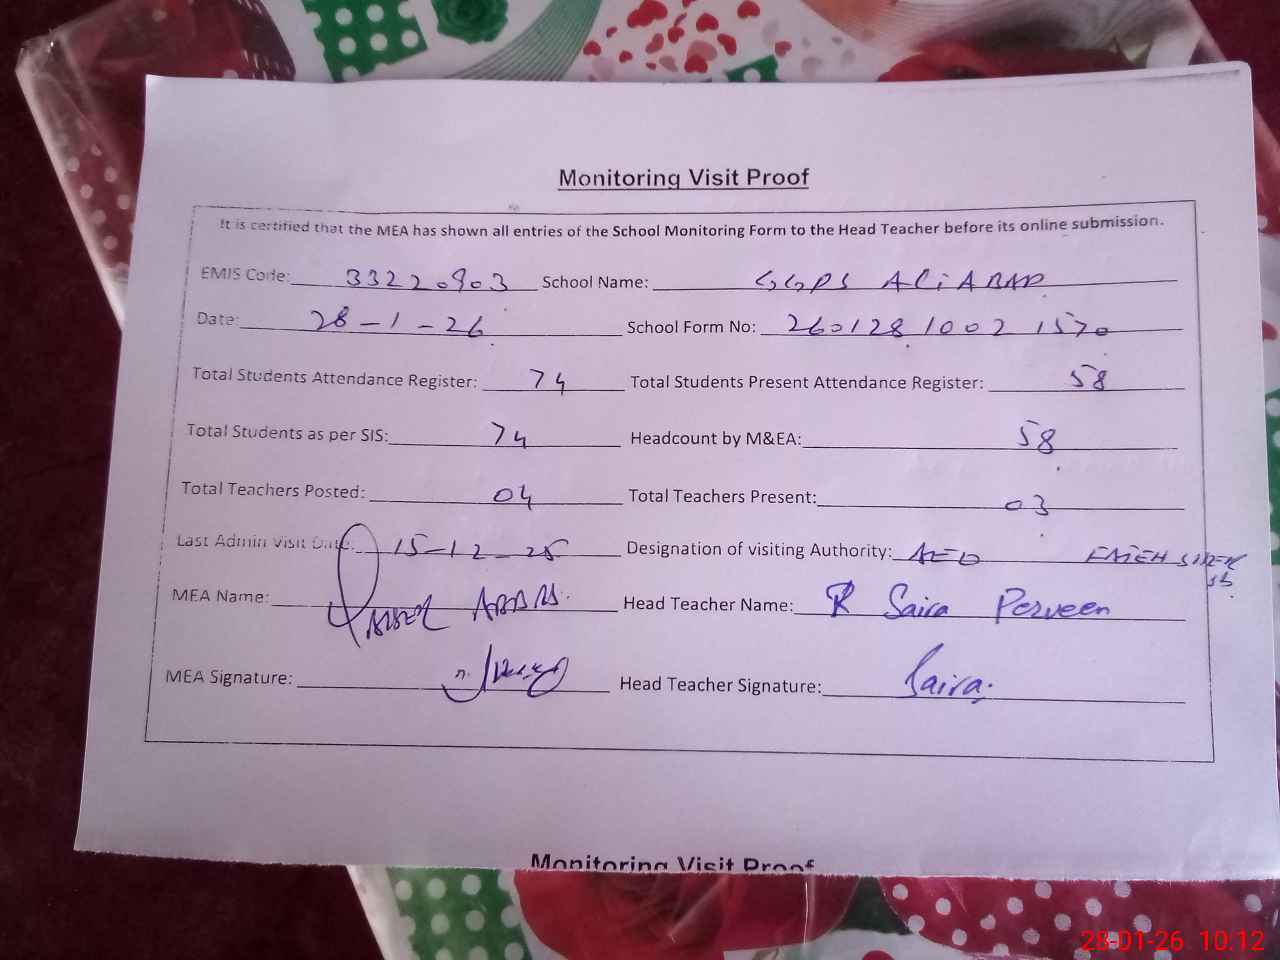 Monitoring Visit Proof
It is certified that the MEA has shown all entries of the School Monitoring Form to the Head Teacher before its online submission.
EMIS Code: 33220903 School Name: GGPS ALiABAD
Date: 28-1-26 School Form No: 260128 1002 1570
Total Students Attendance Register: 74 Total Students Present Attendance Register: 58
Total Students as per SIS: 74 Headcount by M&EA: 58
Total Teachers Posted: 04 Total Teachers Present: 03
Last Admin Visit Date: 15-12-25 Designation of visiting Authority: AEO
MEA Name: ABBAS. Head Teacher Name: Saira Perveen
MEA Signature: Head Teacher Signature: Saira.
Monitoring Visit Proof
28-01-26 10:12